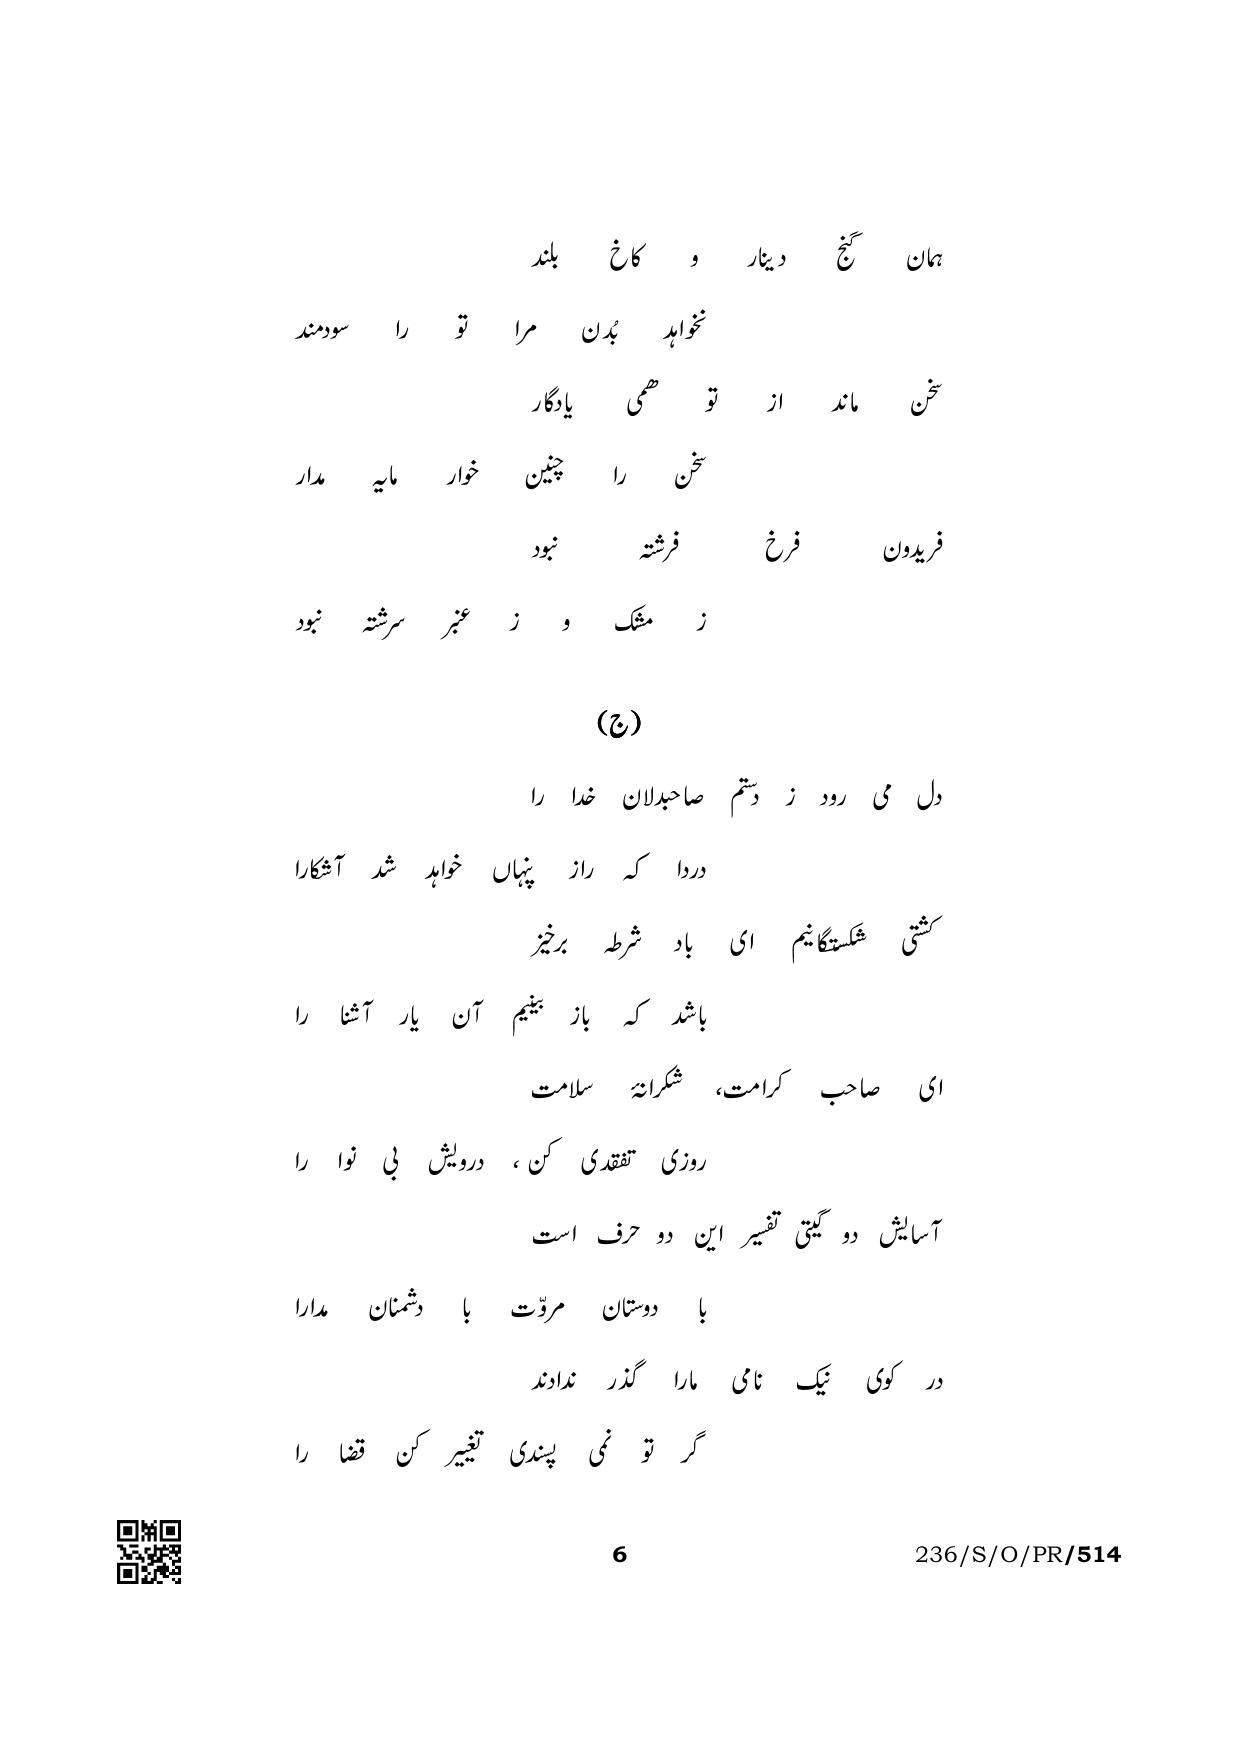 ہمان گنج دینار و کاخ بلند
نخواہد بُدن مرا تو را سودمند
سخن ماند از تو ھمی یادگار
سخن را چنین خوار مایہ مدار
فریدون فرخ فرشتہ نبود
ز مشک و ز عنبر سرشتہ نبود
(ج)
دل می رود ز دستم صاحبدلان خدا را
دردا کہ راز پنہاں خواہد شد آشکارا
کشتی شکستگانیم ای باد شرطہ برخیز
باشد کہ باز بینیم آن یار آشنا را
ای صاحب کرامت، شکرانۂ سلامت
روزی تفقدی کن ، درویش بی نوا را
آسایش دو گیتی تفسیر این دو حرف است
با دوستان مروّت با دشمنان مدارا
در کوی نیک نامی مارا گذر ندادند
گر تو نمی پسندی تغییر کن قضا را
6
236/S/O/PR/514